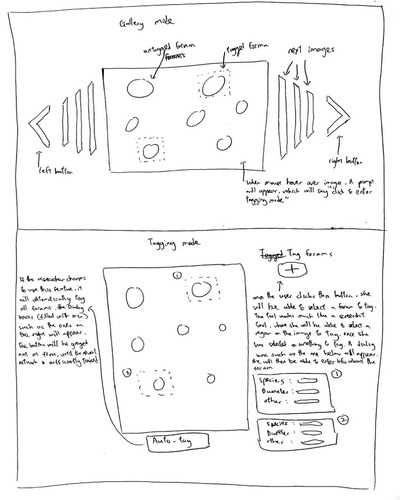 Gallery mode
untagged foram
forams
tagged forams
next images
left button
right button
When mouse hover over image, A prompt
will appear, which will say "click to enter
tagging mode"
Tagging mode
If the researcher chooses
to use this feature, it
will automatically tag
all forams, the dialog
boxes (filled with info)
such as the ones on
the right will appear.
The button will be greyed
out at first, until the
network is sufficiently trained
Tagged Tag forams
+
once the user clicks this button, she
will be able to select a foram to tag.
The tool works much like a screenshot
tool. she will be able to select a
region on the image to tag. once she
has selected something to tag, A dialog
box such as the one below will appear.
she will then be able to enter info about the
foram
1
2
Species :
Diameter :
other :
1
Species :
Diameter :
other :
2
Auto-tag